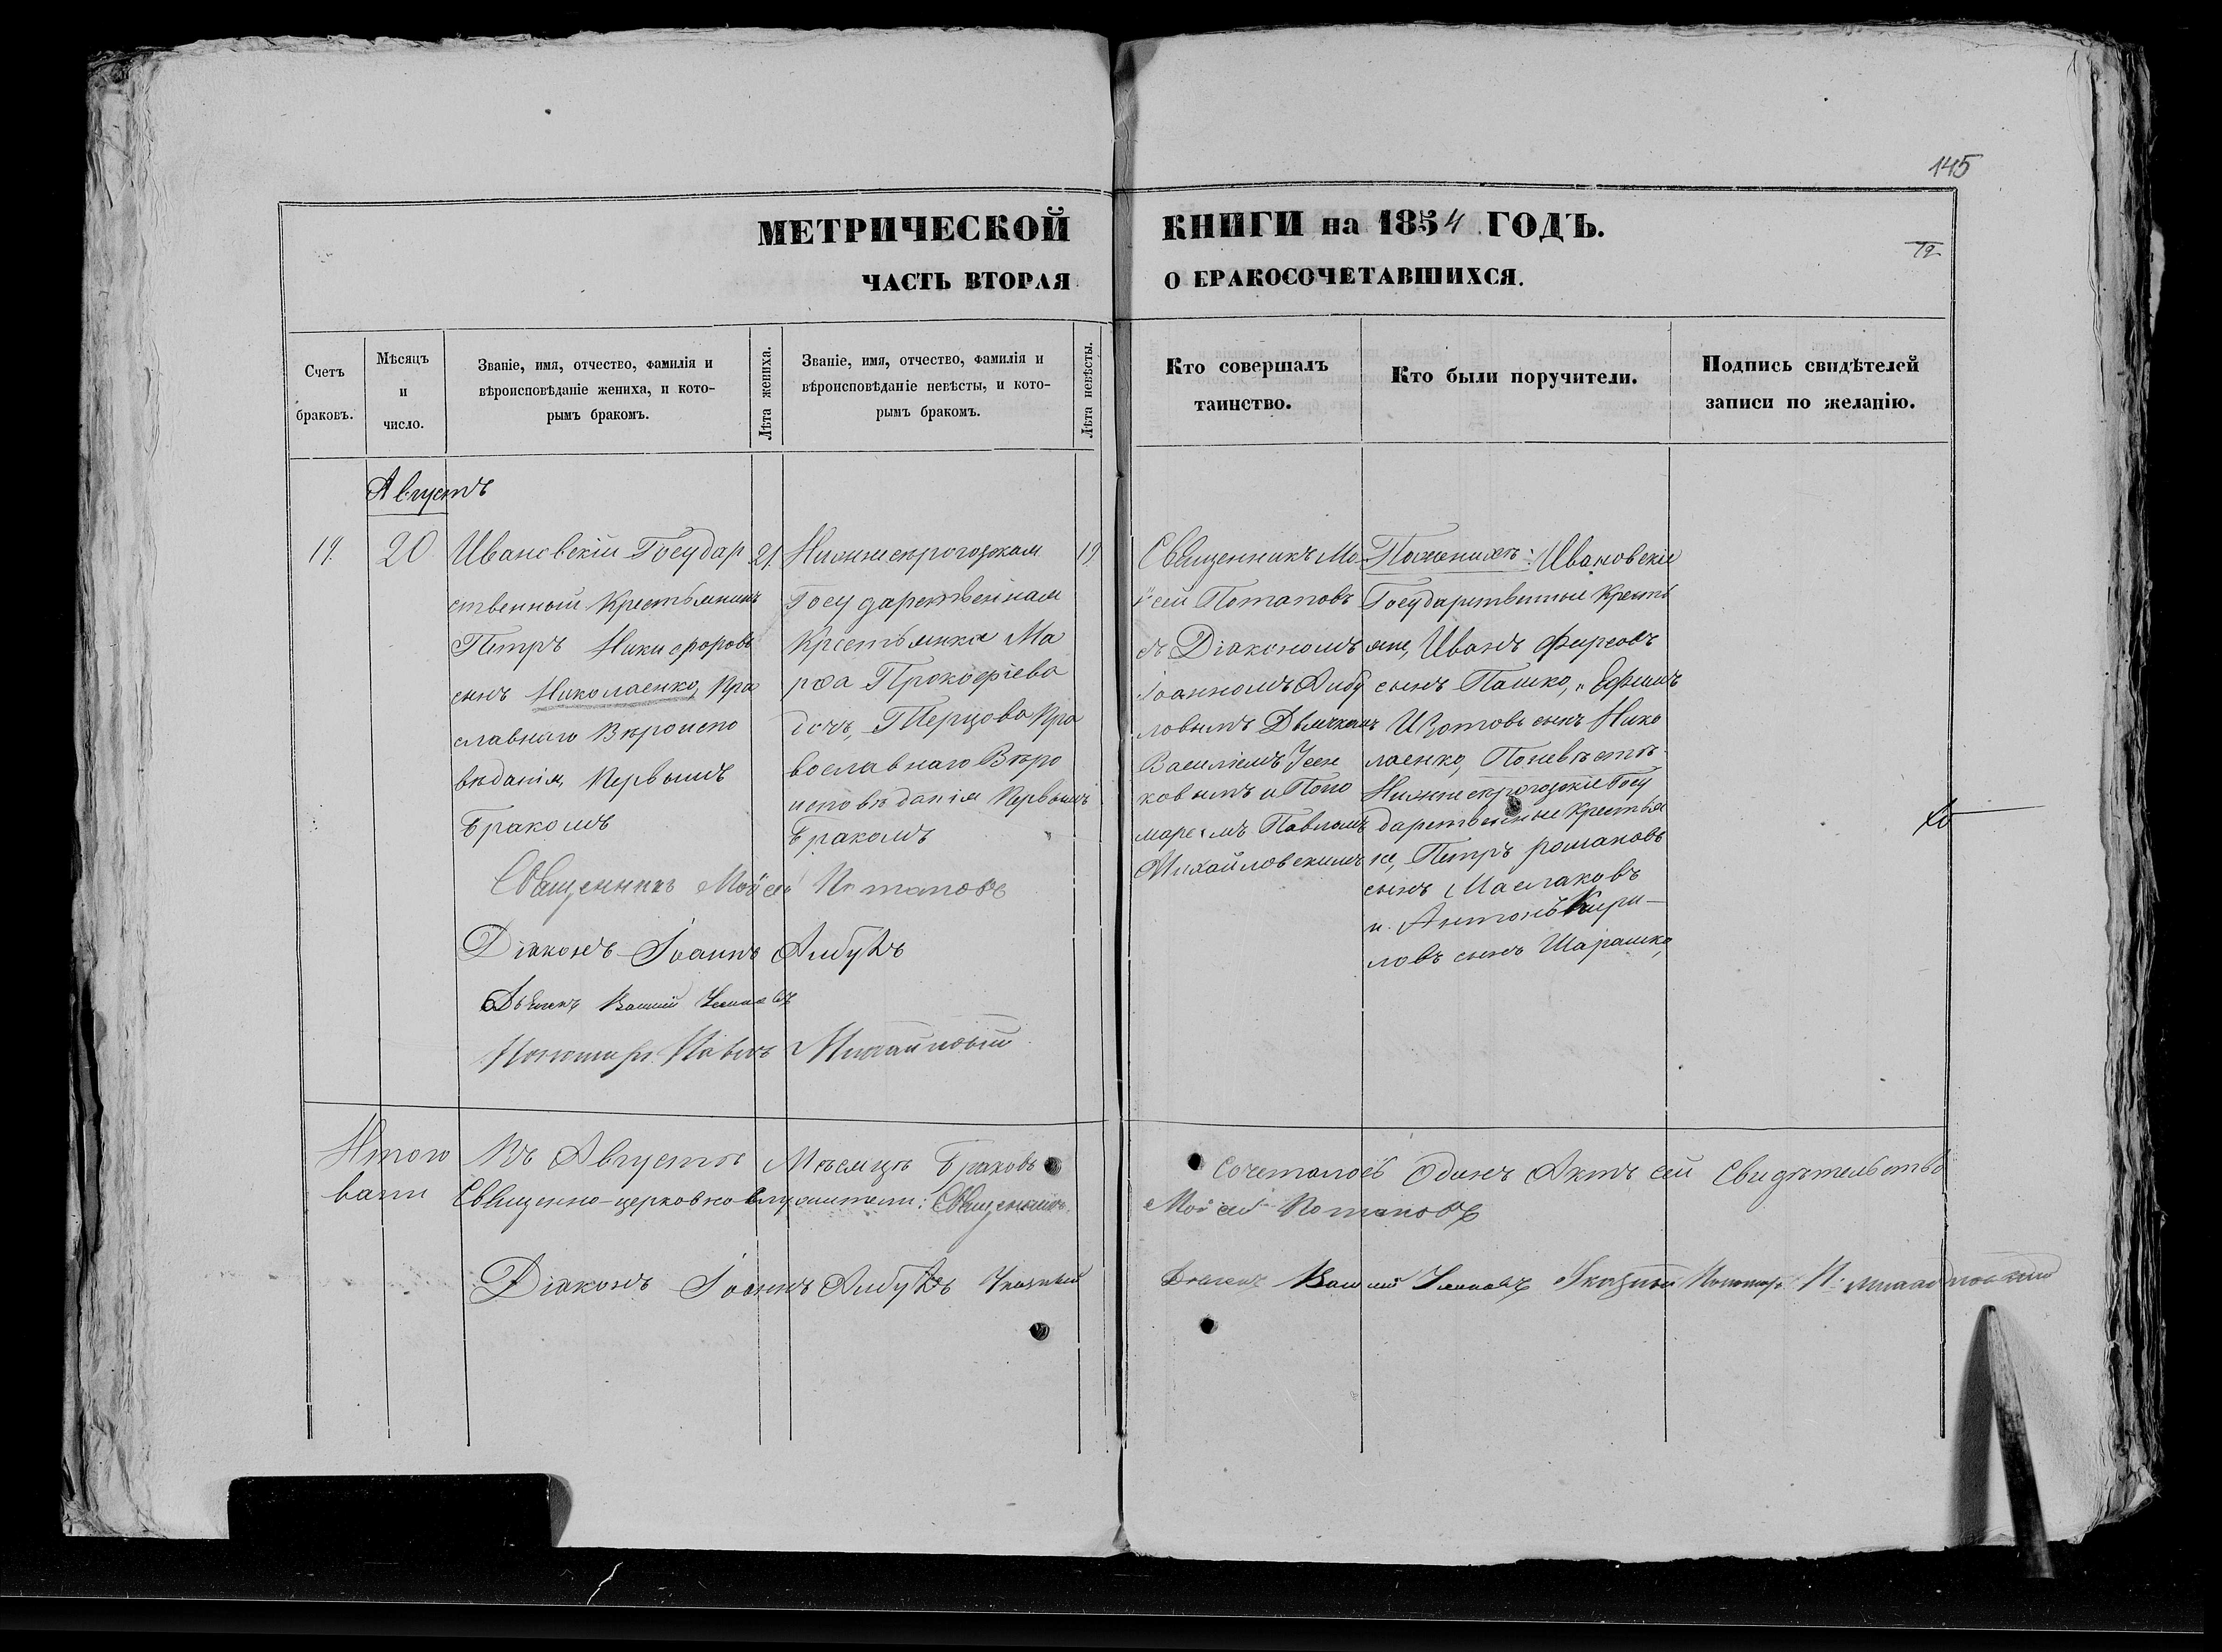 145
МЕТРИЧЕСКОЙ КНИГИ на 1854 ГОДЪ.
12
ЧАСТЬ ВТОРАЯ О БРАКОСОЧЕТАВШИХСЯ.
Счетъ браковъ.
Мѣсяцъ и число.
Званіе, имя, отчество, фамилія и
вѣроисповѣданіе жениха, и кото-
рымъ бракомъ.
Лѣта жениха.
Званіе, имя, отчество, фамилія и
вѣроисповѣданіе невѣсты, и кото-
рымъ бракомъ.
Лѣта невѣсты.
Кто совершалъ
таинство.
Кто были поручители.
Подпись свидѣтелей
записи по желанію.
Августъ
20
Ивановскій Государ
ственный Крестьянинъ
Петръ Никифоровъ
сынъ Николаенко, Пра
славнаго Вѣроиспо
вѣданія, Первымъ
Бракомъ
21.
Нижнесѣрогозская
Государственная
Крестьянка Ма
рѳа Прокофіева
дочь, Перцова Пра
вославнаго Вѣро
исповѣданія Первымъ
Бракомъ
19
Священникъ Мо
ѵсей Потаповъ
съ Діакономъ
Іоанномъ Ямбу
ловымъ Дьячкомъ
Василіемъ
ковымъ и Поно
маремъ Павломъ
Михайловскимъ
По женихѣ: Ивановскіе
Государственные Кресть
яне, Иванъ Фирсовъ
сынъ Пашко, и Ефимъ
Изотовъ сынъ Нико
лаенко, По невѣстѣ
Нижнесѣрогозскіе Госу
дарственные Крестья
не, Петръ романовъ
сынъ Маслаковъ
и Антонъ Кири-
ловъ сынъ Шарашко,
Священникъ Моѵсей Потаповъ
Діаконъ Іоаннъ
Дьячекъ Василій
Пономарь Павелъ Михайловскій
Итого Въ Августѣ Мѣсяцѣ Браковъ Сочеталось Одинъ Актъ сей Свидѣтельство
вали Священно-церковно-служители: Священникъ Моѵсей Потаповъ
Діаконъ Іоаннъ Указный Дьячекъ Василій Указный Пономарь П. Михайловскій